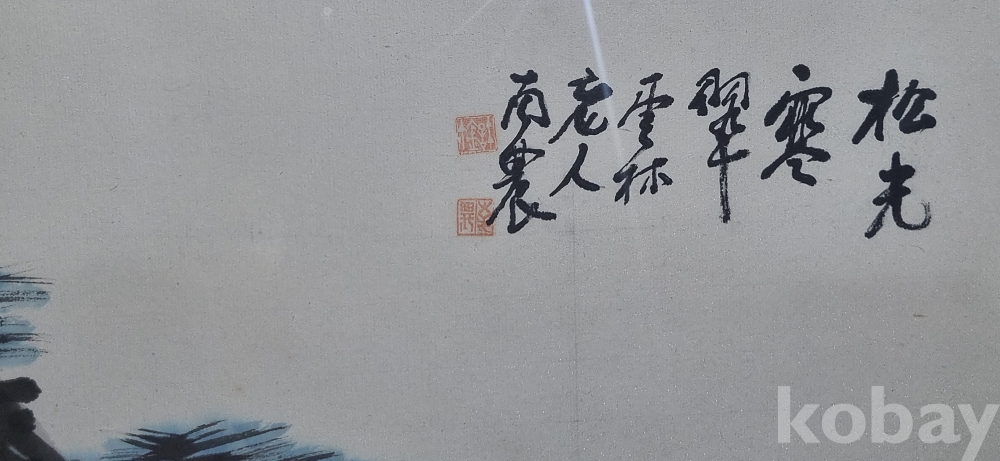 松光
寒
翠
雲林
老人
南農
kobay